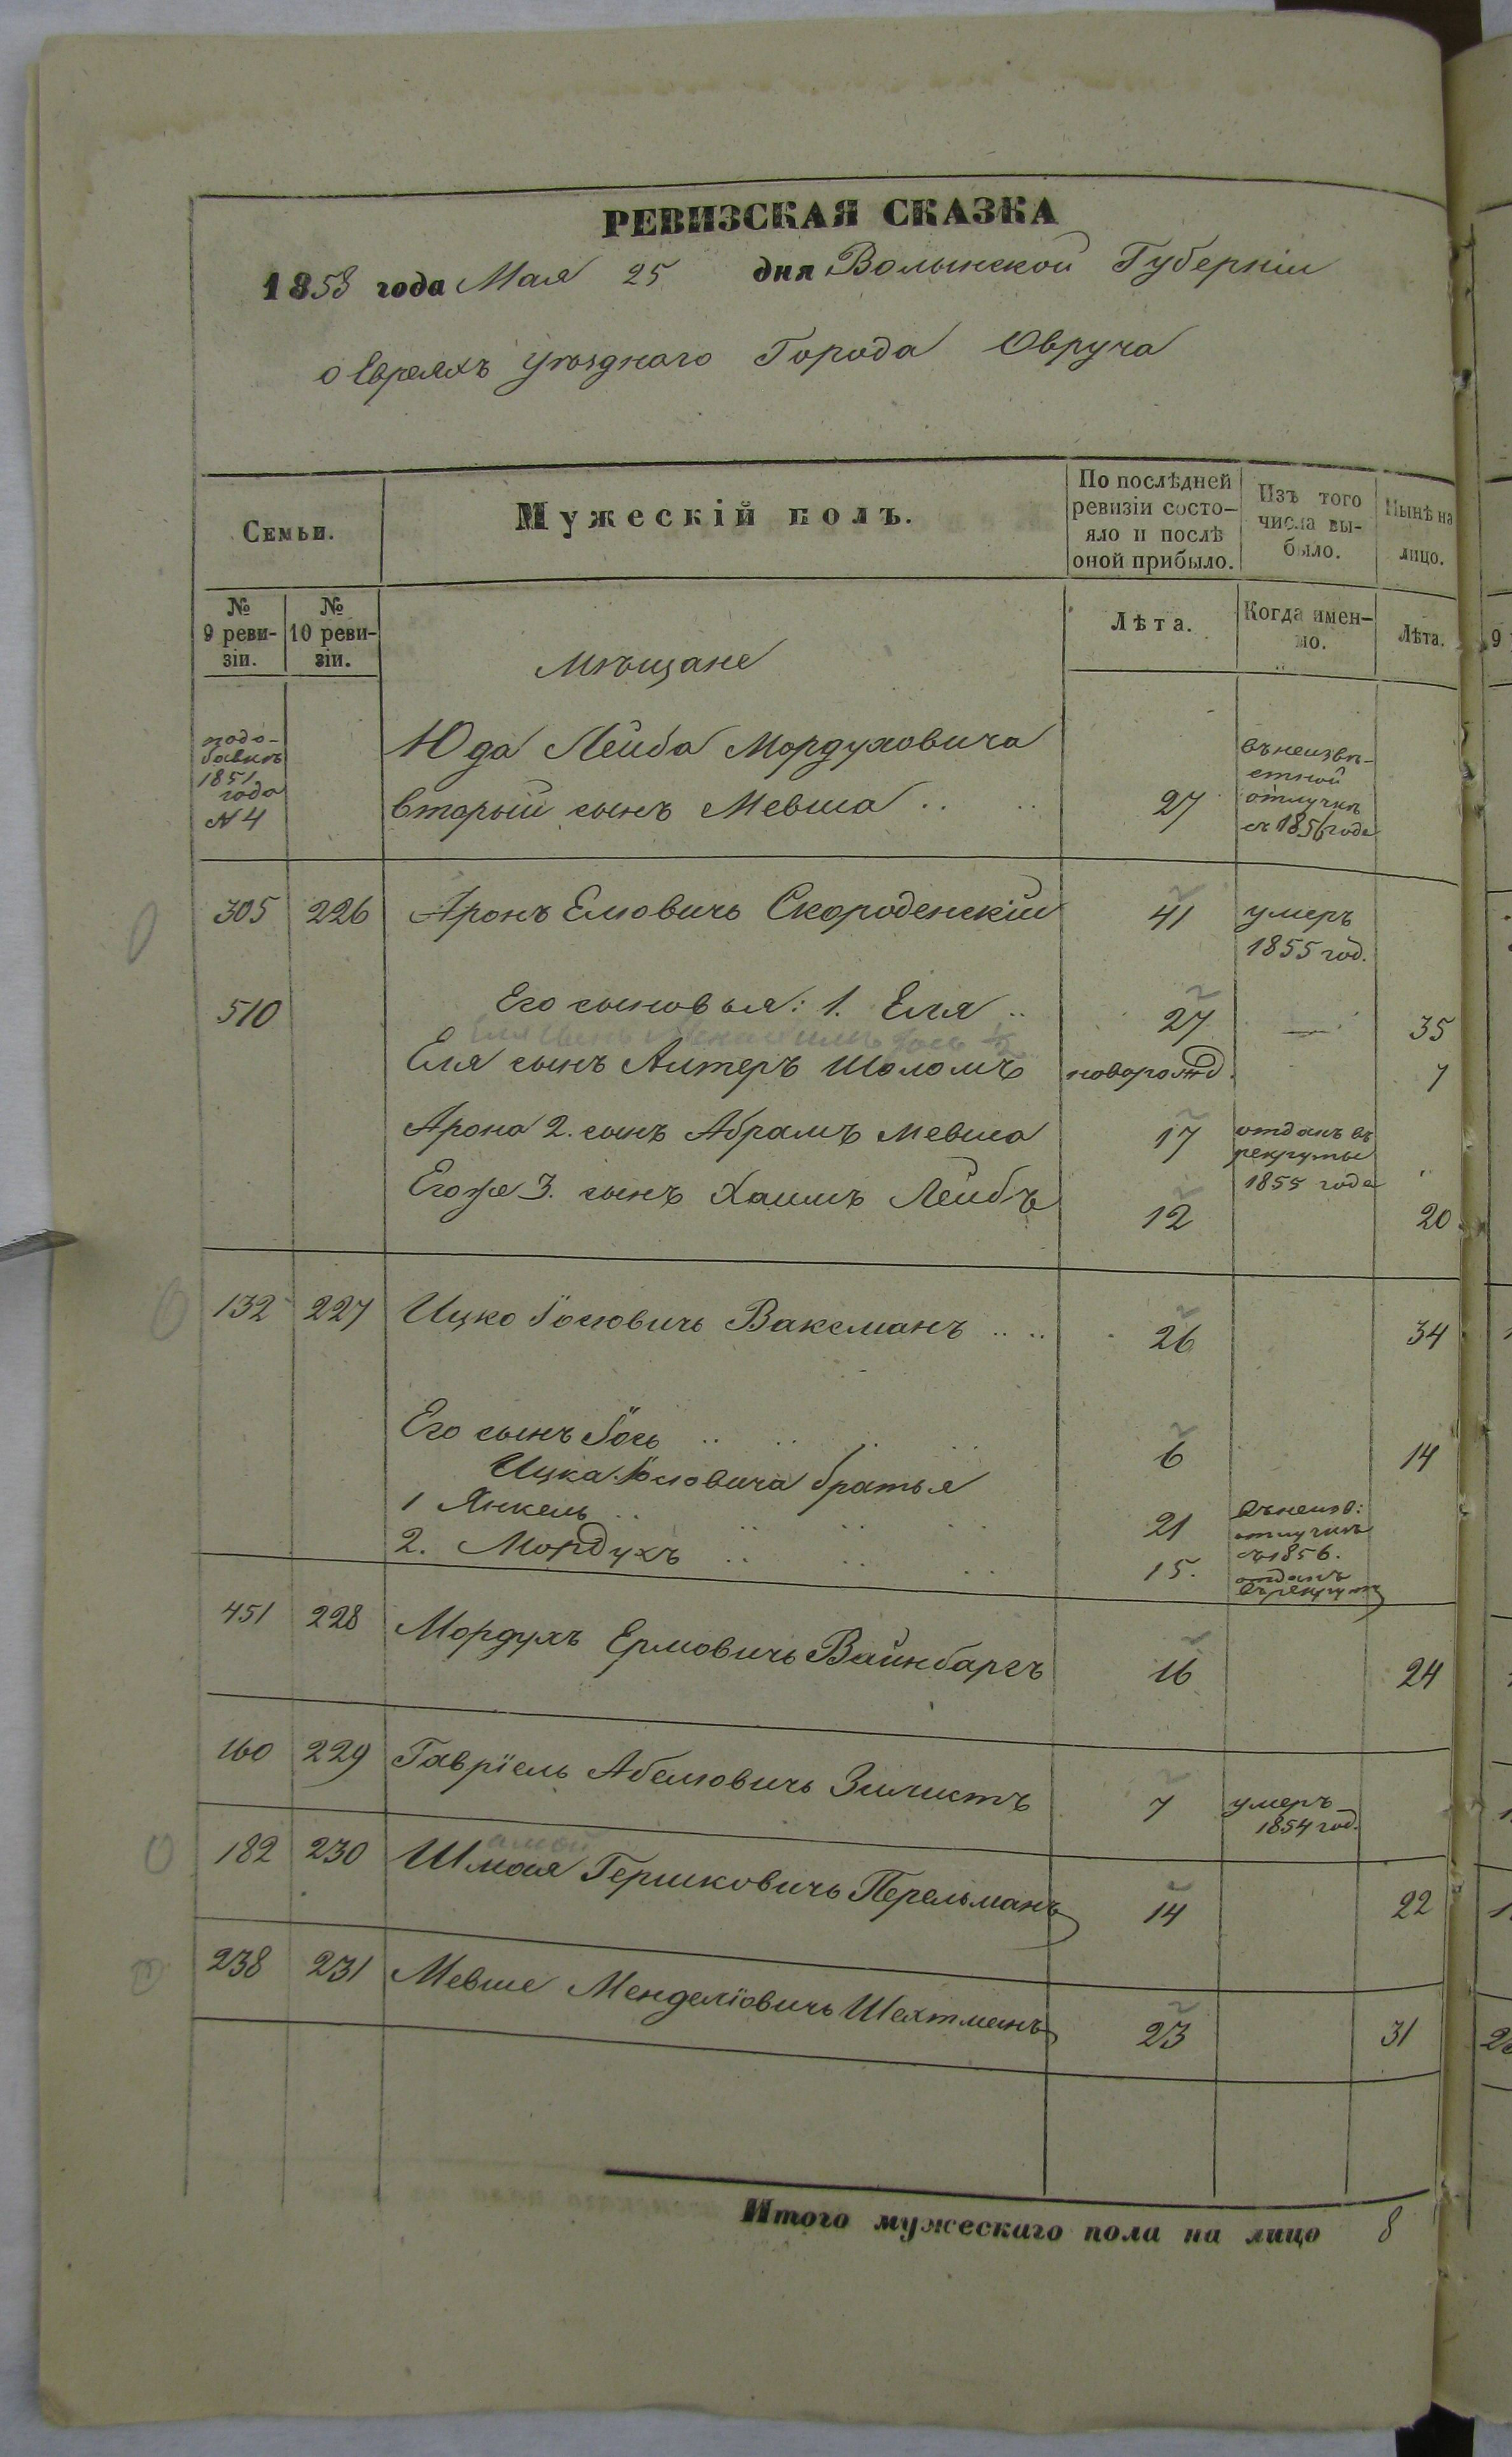 РЕВИЗСКАЯ СКАЗКА
1858 года Мая 25 дня Волынской Губерніи
о Евреяхъ Уѣзднаго Города Овруча
Семьи.
Мужескій полъ.
По послѣдней ревизіи состо-
яло и послѣ
оной прибыло.
Изъ того
числа вы-
было.
Нынѣ на
лицо.
№
9 реви-
зіи.
№
10 реви-
зіи.
Лѣта.
Когда имен-
но.
Лѣта.
Мѣщане
1851
года
№ 4
Юда Лейба Мордуховича
вторый сынъ Мевша .. .. 27
въ неизвѣ-
стной
отлучкѣ
съ 1856 года
305 226 Аронъ Елювичъ Скороденскій 41 умеръ
1855 год.
510 Его сыновья: 1. Еля .. 27 — 35
Еля сынъ Алтеръ Шоломъ новорожд. 7
Арона 2. сынъ Абрамъ Мевша 17 отданъ въ
рекруты
1855 года ..
Егоже 3. сынъ Хаимъ Лейбъ 12 20
132 227 Ицко Іосіовичъ Ваксманъ .. .. 26 34
Его сынъ Іось .. .. .. .. 6 14
Ицка Іосіовича братья
1 Янкель .. .. .. .. 21
въ неизв:
отлучкѣ
съ 1856.
2. Мордухъ .. .. .. 15.
отданъ
въ рекруты
451 228 Мордухъ Ермовичъ Вайнбаргъ 16 24
160 229 Гавріель Абелювичъ Зилистъ 7 умеръ
1854 год.
182 230 Шмоя Гершковичъ Перельманъ 14 22
238 231 Мевше Менделіовичъ Шехтманъ 23 31
Итого мужескаго пола на лицо 8